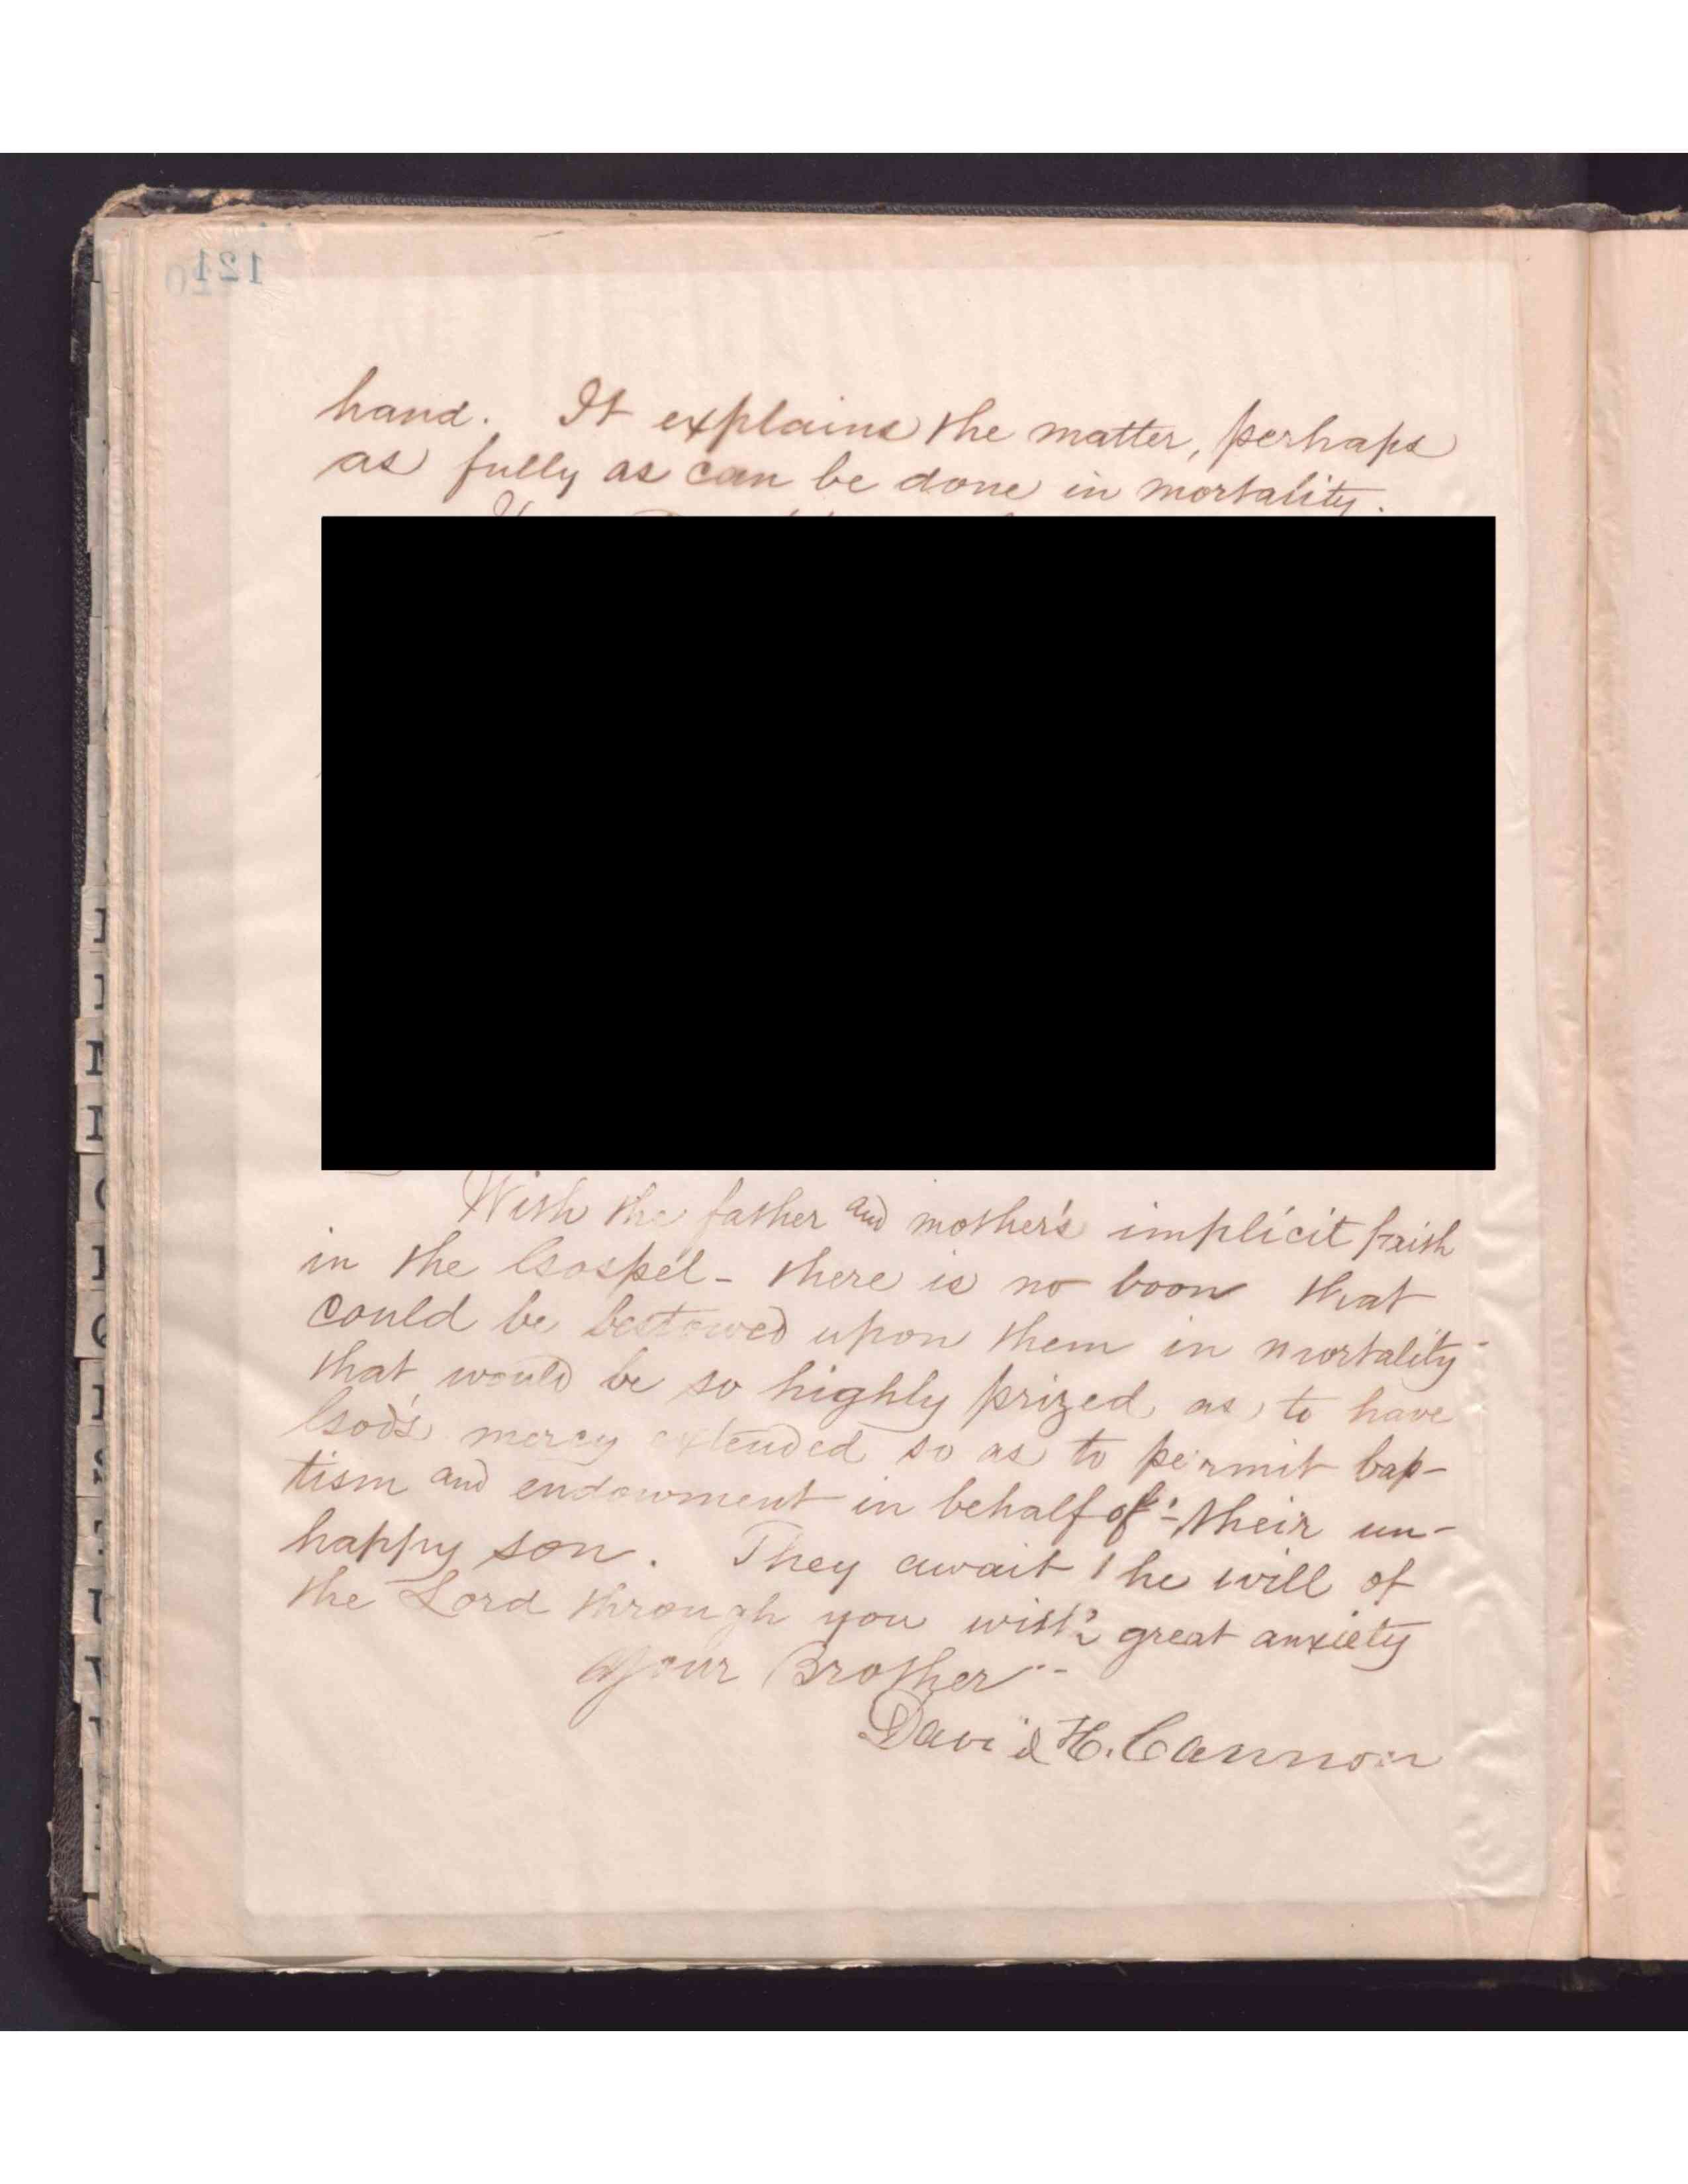 hand. It explains the matter, perhaps
as fully as can be done in mortality.
With the father and mother's implicit faith
in the Gospel - there is no boon that
could be bestowed upon them in mortality
that would be so highly prized as to have
God's mercy extended so as to permit bap-
tism and endowment in behalf of their un-
happy son. They await the will of
the Lord through you with great anxiety
Your Brother
David H. Cannon